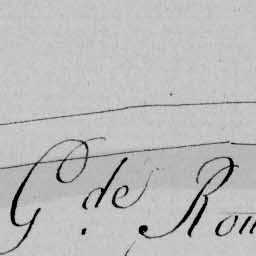 G.de Rou